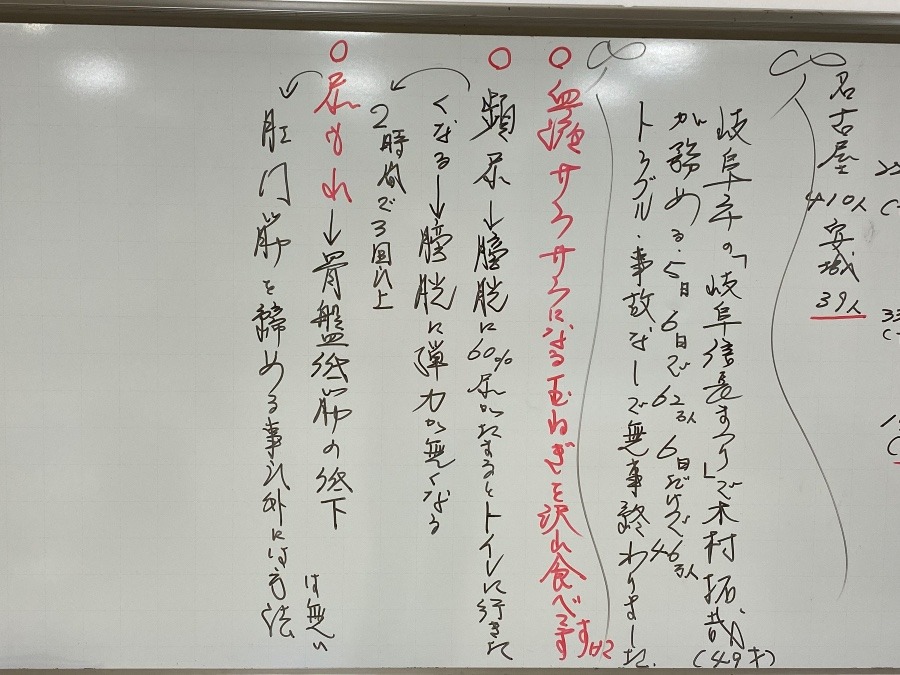 名古屋 410人 安城 39人
岐阜市の「岐阜信長まつり」で木村拓哉(49才)
が務める.5日6日で62万人 6日だけで46万人
トラブル・事故なしで無事終わりました.
○血液サラサラになる玉ねぎを沢山食べてます
○頻尿→膀胱に60%尿がたまるとトイレに行きた
くなる→膀胱に弾力が無くなる
2時間で3回以上
○尿もれ→骨盤底筋の低下
肛門筋を締める事以外には方法
は無い